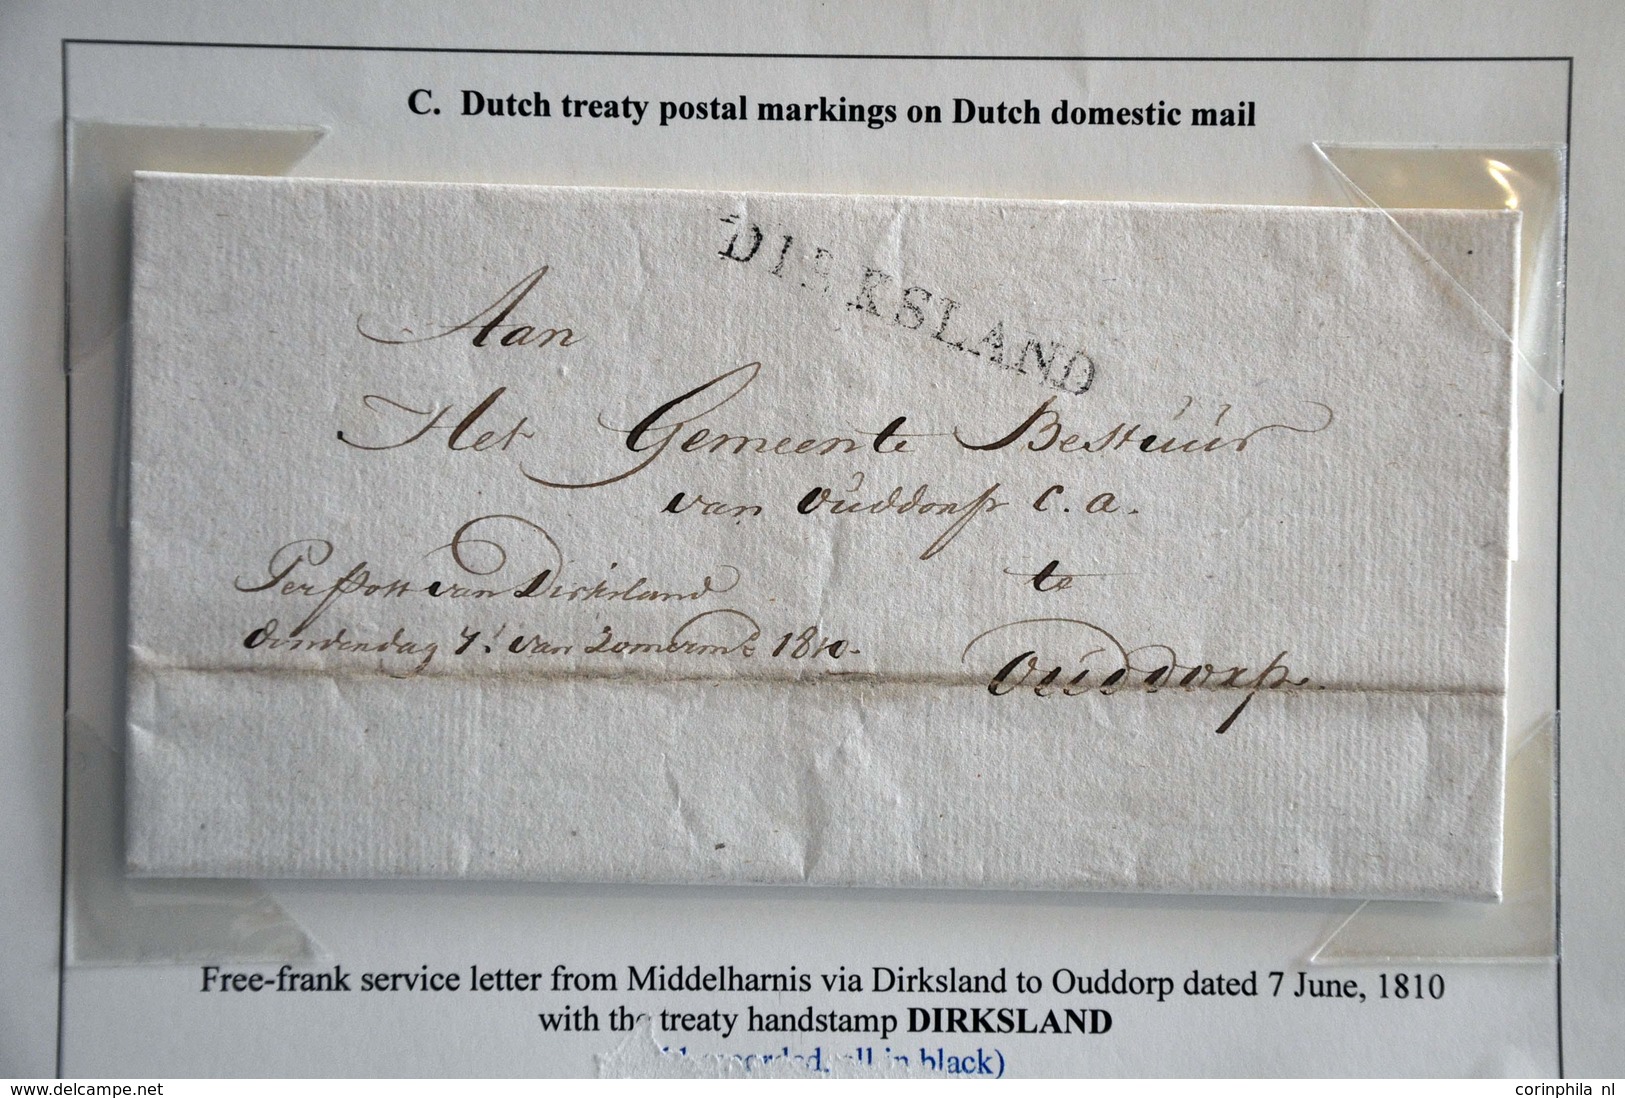 C. Dutch treaty postal markings on Dutch domestic mail
DIRKSLAND
Aan
Het Gemeente Bestuur
van Ouddorp C. a.
Per Post van Dirksland
te
donderdag 7: van Zomerm: 1810.
Ouddorp.
Free-frank service letter from Middelharnis via Dirksland to Ouddorp dated 7 June, 1810
with the treaty handstamp DIRKSLAND
recorded, all in black)
delcampe.net
corinphila nl